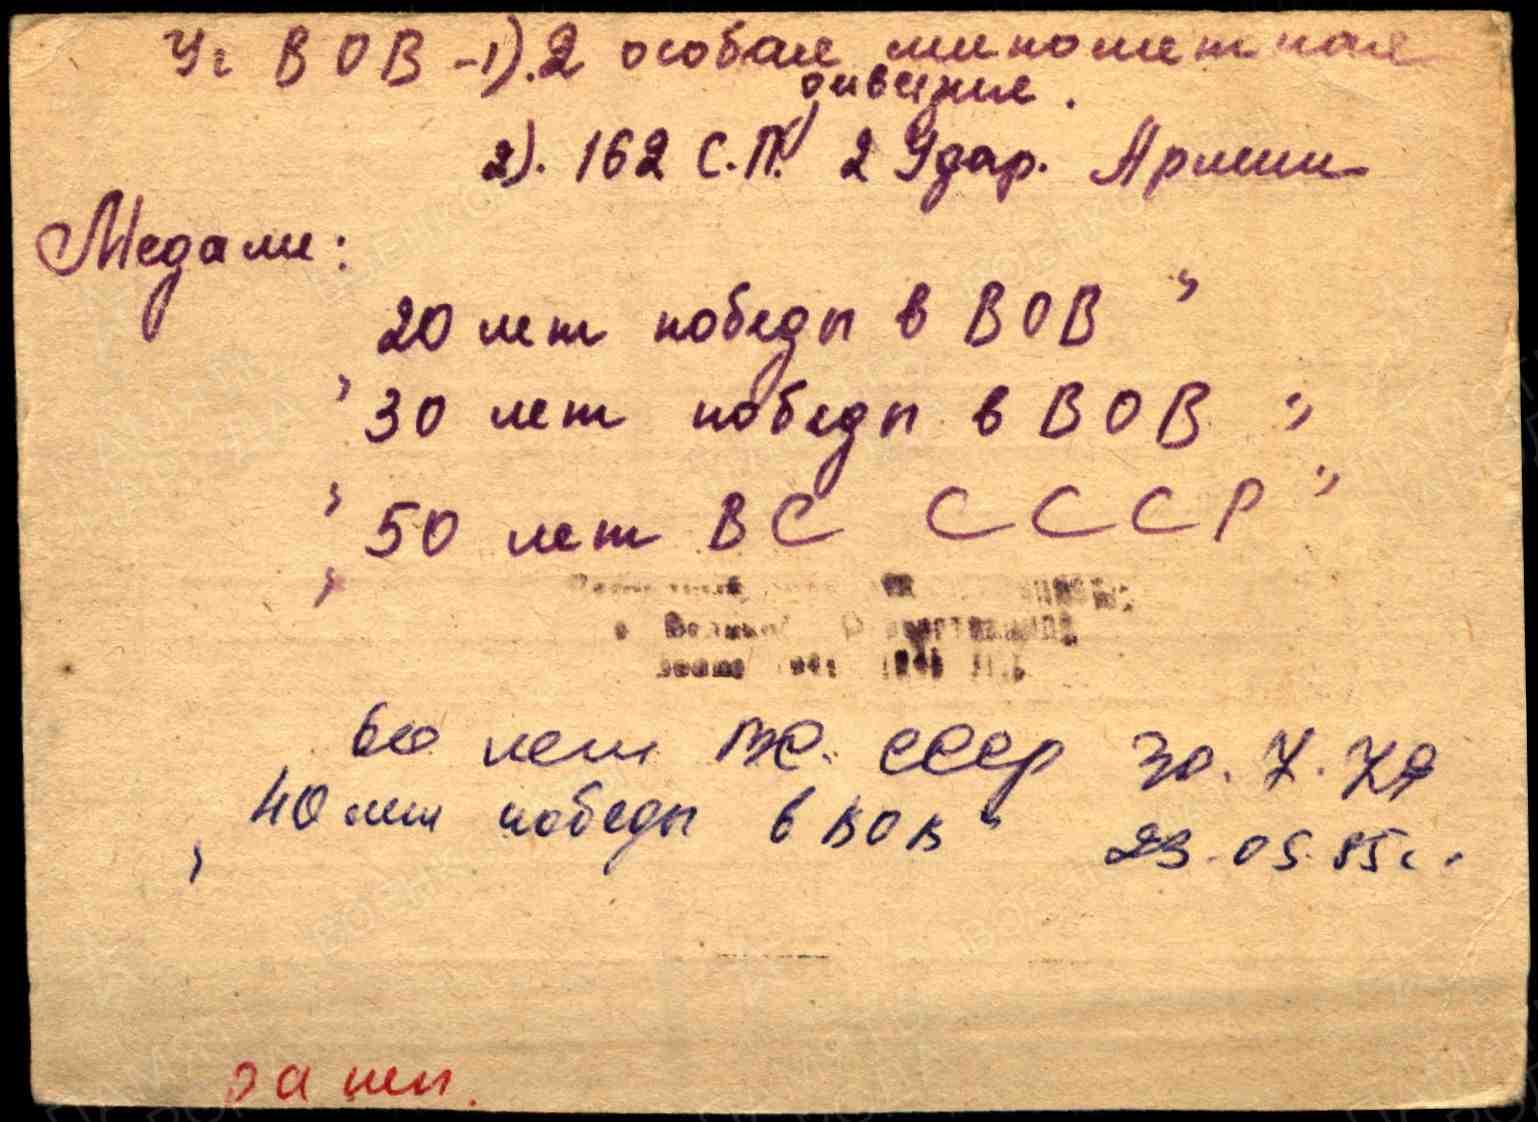 Уч ВОВ - 1). 2 особая минометная
дивизия.
2). 162 С.П. 2 Удар. Армии
Медали:
20 лет победы в ВОВ"
"30 лет победы в ВОВ"
"50 лет ВС СССР"
Великой Отечественной
60 лет ВС. СССР 30.X.79
"40 лет победы в ВОВ" 23.05.85г.
ранен.